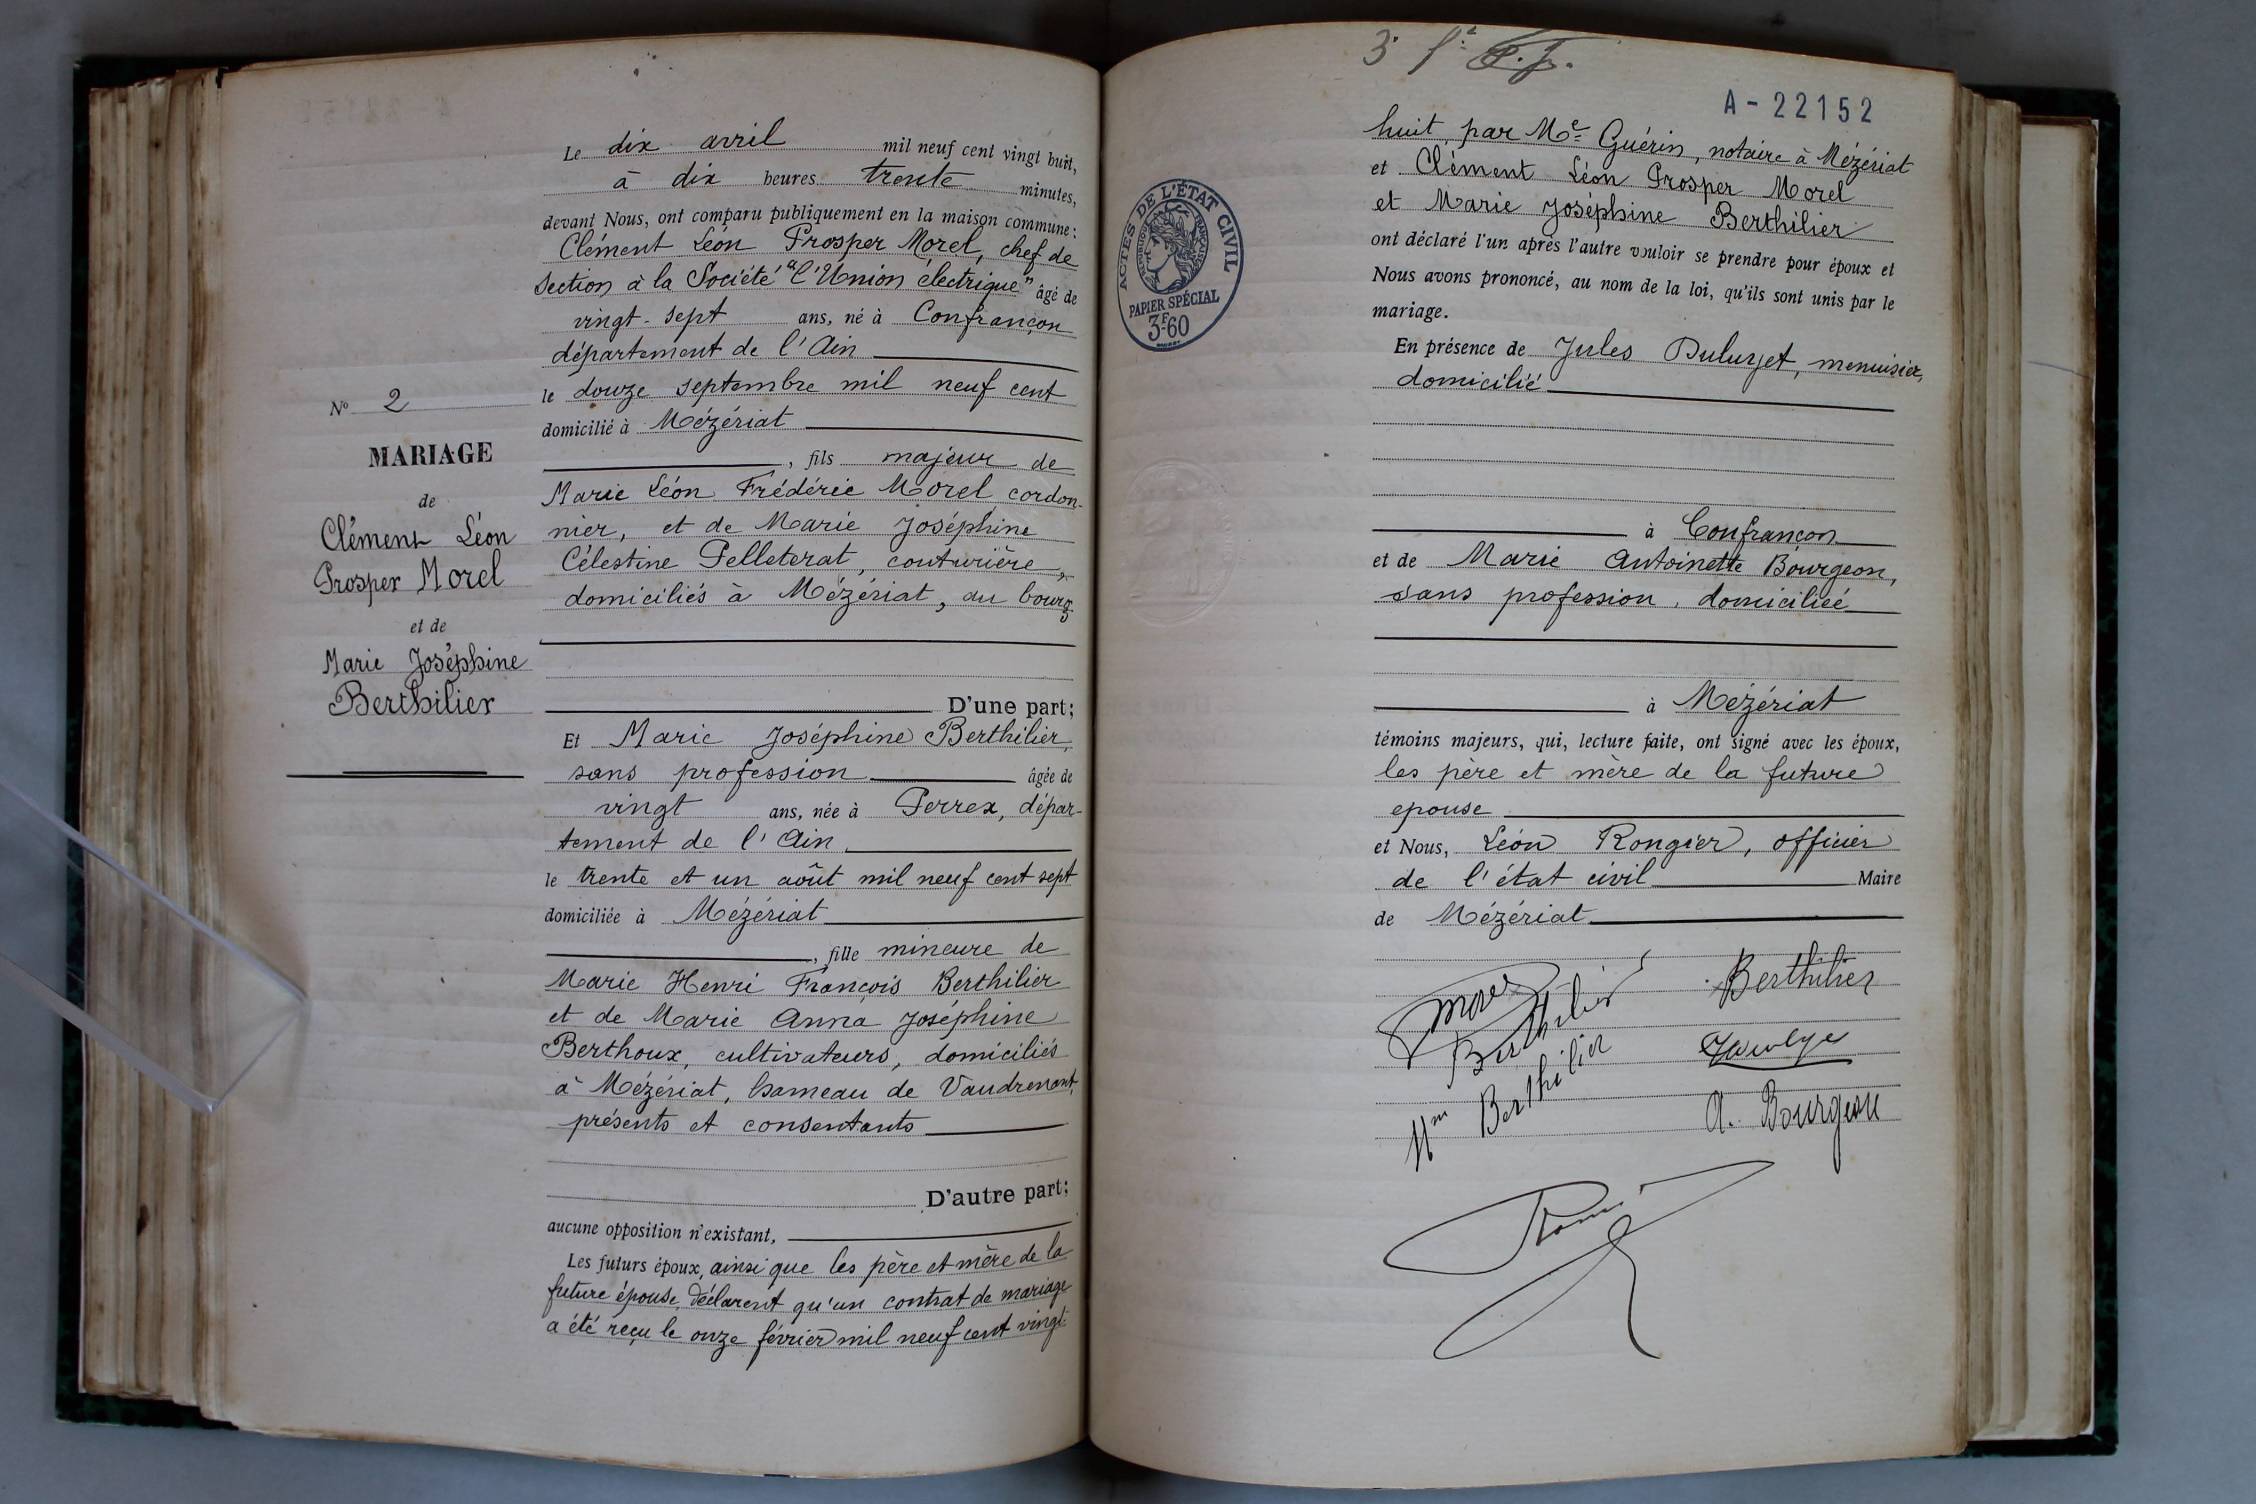 Le dix avril mil neuf cent vingt huit,
à dix heures trente minutes,
devant Nous, ont comparu publiquement en la maison commune :
Clément Léon Prosper Morel, chef de
section à la Société "l'Union électrique" âgé de
vingt-sept ans, né à Confrançon
département de l'Ain
le douze septembre mil neuf cent
domicilié à Mézériat
, fils majeur de
Marie Léon Frédéric Morel cordon-
nier, et de Marie Joséphine
Célestine Pelleterat, couturière,
domiciliés à Mézériat, au bourg
D'une part;
Et Marie Joséphine Berthilier,
sans profession âgée de
vingt ans, née à Perrex, dépar-
tement de l'Ain
le trente et un août mil neuf cent sept
domiciliée à Mézériat
, fille mineure de
Marie Henri François Berthilier
et de Marie Anna Joséphine
Berthoux, cultivateurs, domiciliés
à Mézériat, hameau de Vaudrenant,
présents et consentants
D'autre part;
aucune opposition n'existant,
Les futurs époux, ainsi que les père et mère de la
future épouse, déclarent qu'un contrat de mariage
a été reçu le onze février mil neuf cent vingt-
N° 2
MARIAGE
de
Clément Léon
Prosper Morel
et de
Marie Joséphine
Berthilier
3
A-22152
huit, par Me Guérin, notaire à Mézériat
et Clément Léon Prosper Morel
et Marie Joséphine Berthilier
ont déclaré l'un après l'autre vouloir se prendre pour époux et
Nous avons prononcé, au nom de la loi, qu'ils sont unis par le
mariage.
En présence de Jules menuisier,
domicilié
à Confrançon
et de Marie Antoinette Bourgeon,
sans profession, domiciliée
à Mézériat
témoins majeurs, qui, lecture faite, ont signé avec les époux,
les père et mère de la future
epouse
et Nous, Léon Rongier, officier
de l'état civil Maire
de Mézériat
Morel
Berthilier
Berthilier
Mm Berthilier
A. Bourgeon
ACTES DE L'ÉTAT CIVIL
RÉPUBLIQUE FRANÇAISE
PAPIER SPÉCIAL
3F60